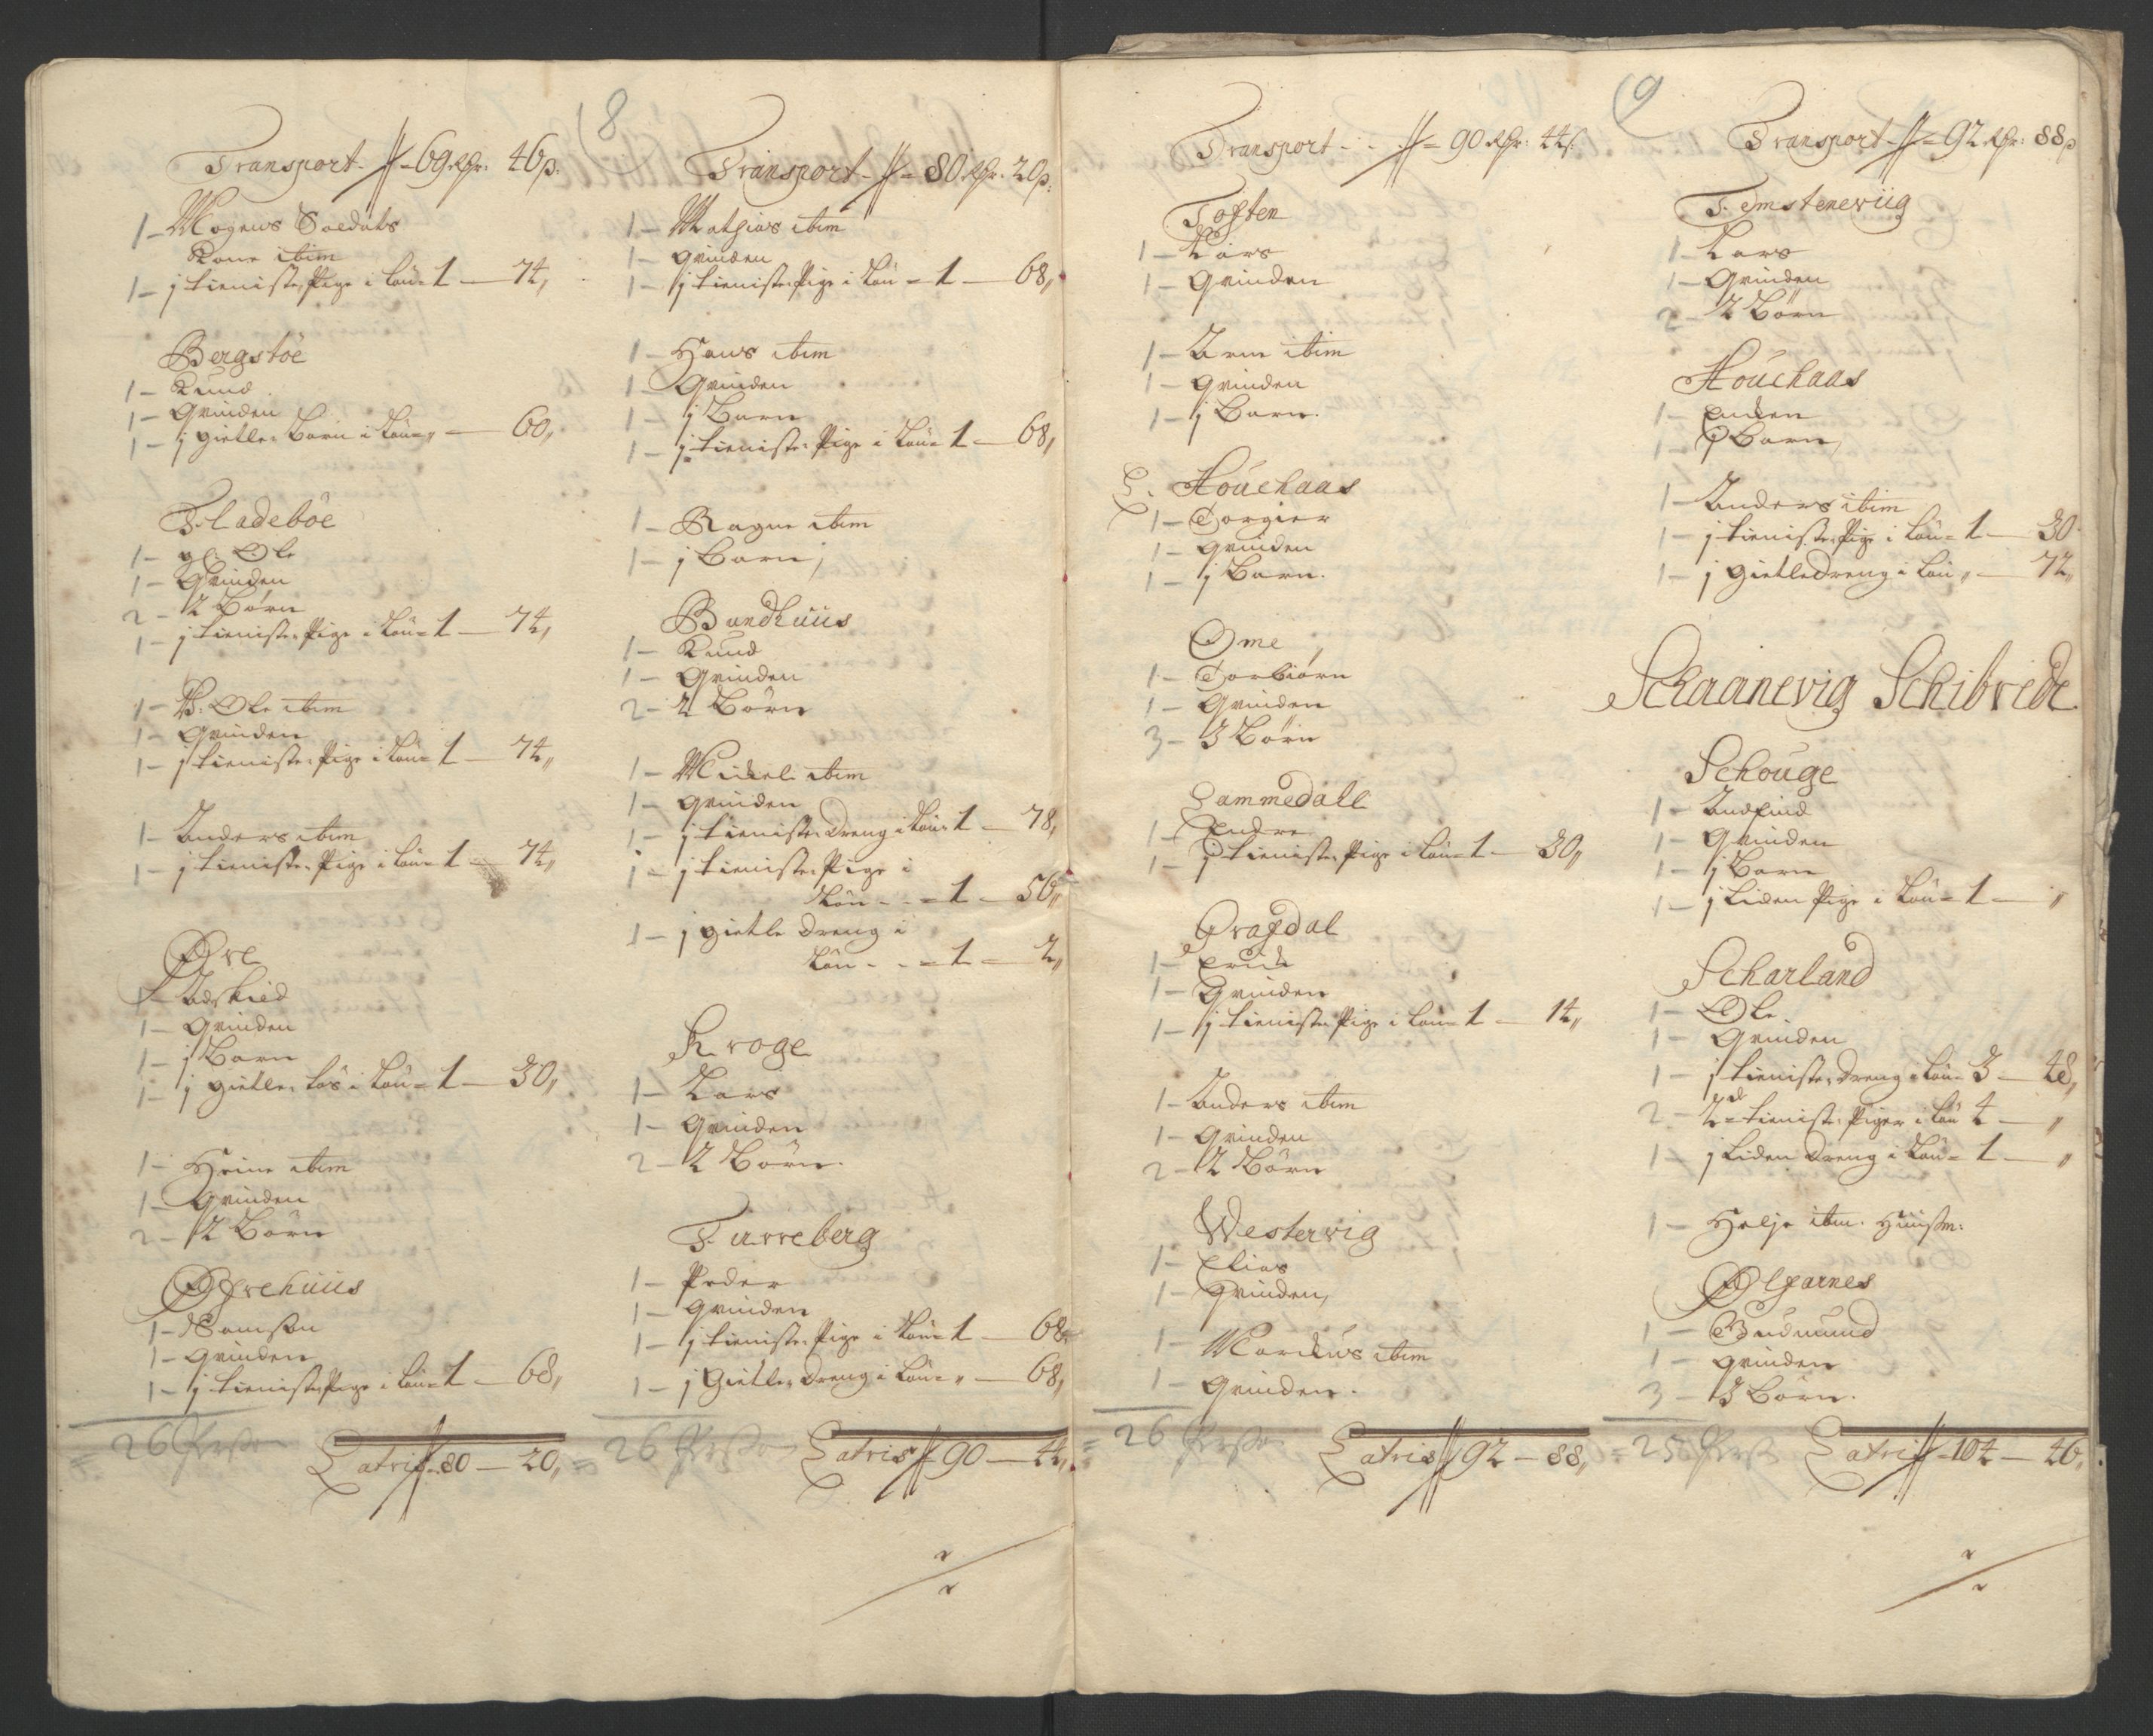 8
Transport - 69 Rdr: 46 s:
1 - Mogens Soldats
Kone ibim
1 - j tieniste Pige i Løn = 1 — 74,,
Bergstöe
1 - Knud
1 - Qvinden
1 - j gietle Barn i Løn = ,, — 60,,
Fladeböe
1 - gl: Ole
1 - Qvinden
2 - 2 Börn
1 - j tieniste Pige i Løn = 1 — 74,,
1 - Ole ibim
1 - Qvinden
1 - j tieniste Pige i Løn = 1 — 74,,
1 - Anders ibim
1 - j tieniste Pige i Løn = 1 — 74,,
Øre
1 - Adskied
1 - Qvinden
1 - j Barn
1 - j gietle tøs i Løn = 1 — 30,,
1 - Heine ibim
1 - Qvinden
2 - 2 Börn
Øfrehuus
1 - Samson
1 - Qvinden
1 - j tieniste Pige i Løn = 1 — 68,,
= 26 Persn
Latris 80 — 20,,
Transport - 80 Rdr. 20 s:
1 - Mathias ibim
1 - Qvinden
1 - j tieniste Pige i Løn = 1 — 68,,
1 - Hans ibim
1 - Qvinden
1 - j Barn
1 - j tieniste Pige i Løn = 1 — 68,,
1 - Ragne ibim
1 - j Barn
Bondhuus
1 - Knud
1 - Qvinden
2 - 2 Börn
1 - Mickel ibim
1 - Qvinden
1 - j tieniste dreng i Løn = 1 — 78,,
1 - j tieniste Pige i
Løn - - = 1 — 56,,
1 - j gietle dreng i
Løn - - = 1 — 2,,
Kroge
1 - Lars
1 - Qvinden
2 - 2 Börn.
Turreberg
1 - Peder
1 - Qvinden
1 - j tieniste Pige i Løn = 1 — 68,,
1 - j Gietle dreng i Løn = ,, — 68,,
= 26 Persn
Latris 90 — 44,,
9
Transport - - 90 Rdr: 44 s.
Toften
1 - Lars
1 - Qvinden
1 - Arne ibim
1 - Qvinden
1 - j Barn.
L. Houchaas
1 - Torgier
1 - Qvinden
1 - j Barn.
Ome
1 - Torbiörn
1 - Qvinden
3 - 3 Börn
Lammedall
1 - Endre
1 - j tieniste Pige i Løn = 1 — 30,,
Qvafdal
1 - Erich
1 - Qvinden
1 - j tieniste Pige i Løn = 1 — 14,,
1 - Anders ibim
1 - Qvinden
2 - 2 Börn
Westervig
1 - Elias
1 - Qvinden,
1 - Marckus ibim
1 - Qvinden.
= 26 Persn
Latris 92 — 88,,
Transport - 92 Rdr: 88 s
Femsteneviig
1 - Lars
1 - Qvinden
2 - 2 Börn
Houchaas
1 - Encken
1 - j Barn,
1 - Anders ibim
1 - j tieniste Pige i Løn = 1 — 30
1 - j gietledreng i Løn ,, — 72,,
Schaanevig Schibrede
Schouge
1 - Andfind
1 - Qvinden
1 - j Barn
1 - j liden Pige i Løn = 1 — ,,
Scharland
1 - Ole
1 - Qvinden
1 - j tieniste dreng i Løn = 3 — 48,,
2 - 2de tieniste Piger i Løn 4 — ,,
1 - j liden dreng i Løn = 1 — ,,
1 - Helje ibm. Huusm:
Ølfarnes
1 - Gudmund
1 - Qvinden
3 - 3 Börn.
= 25 Pers
Latris 104 — 46,,